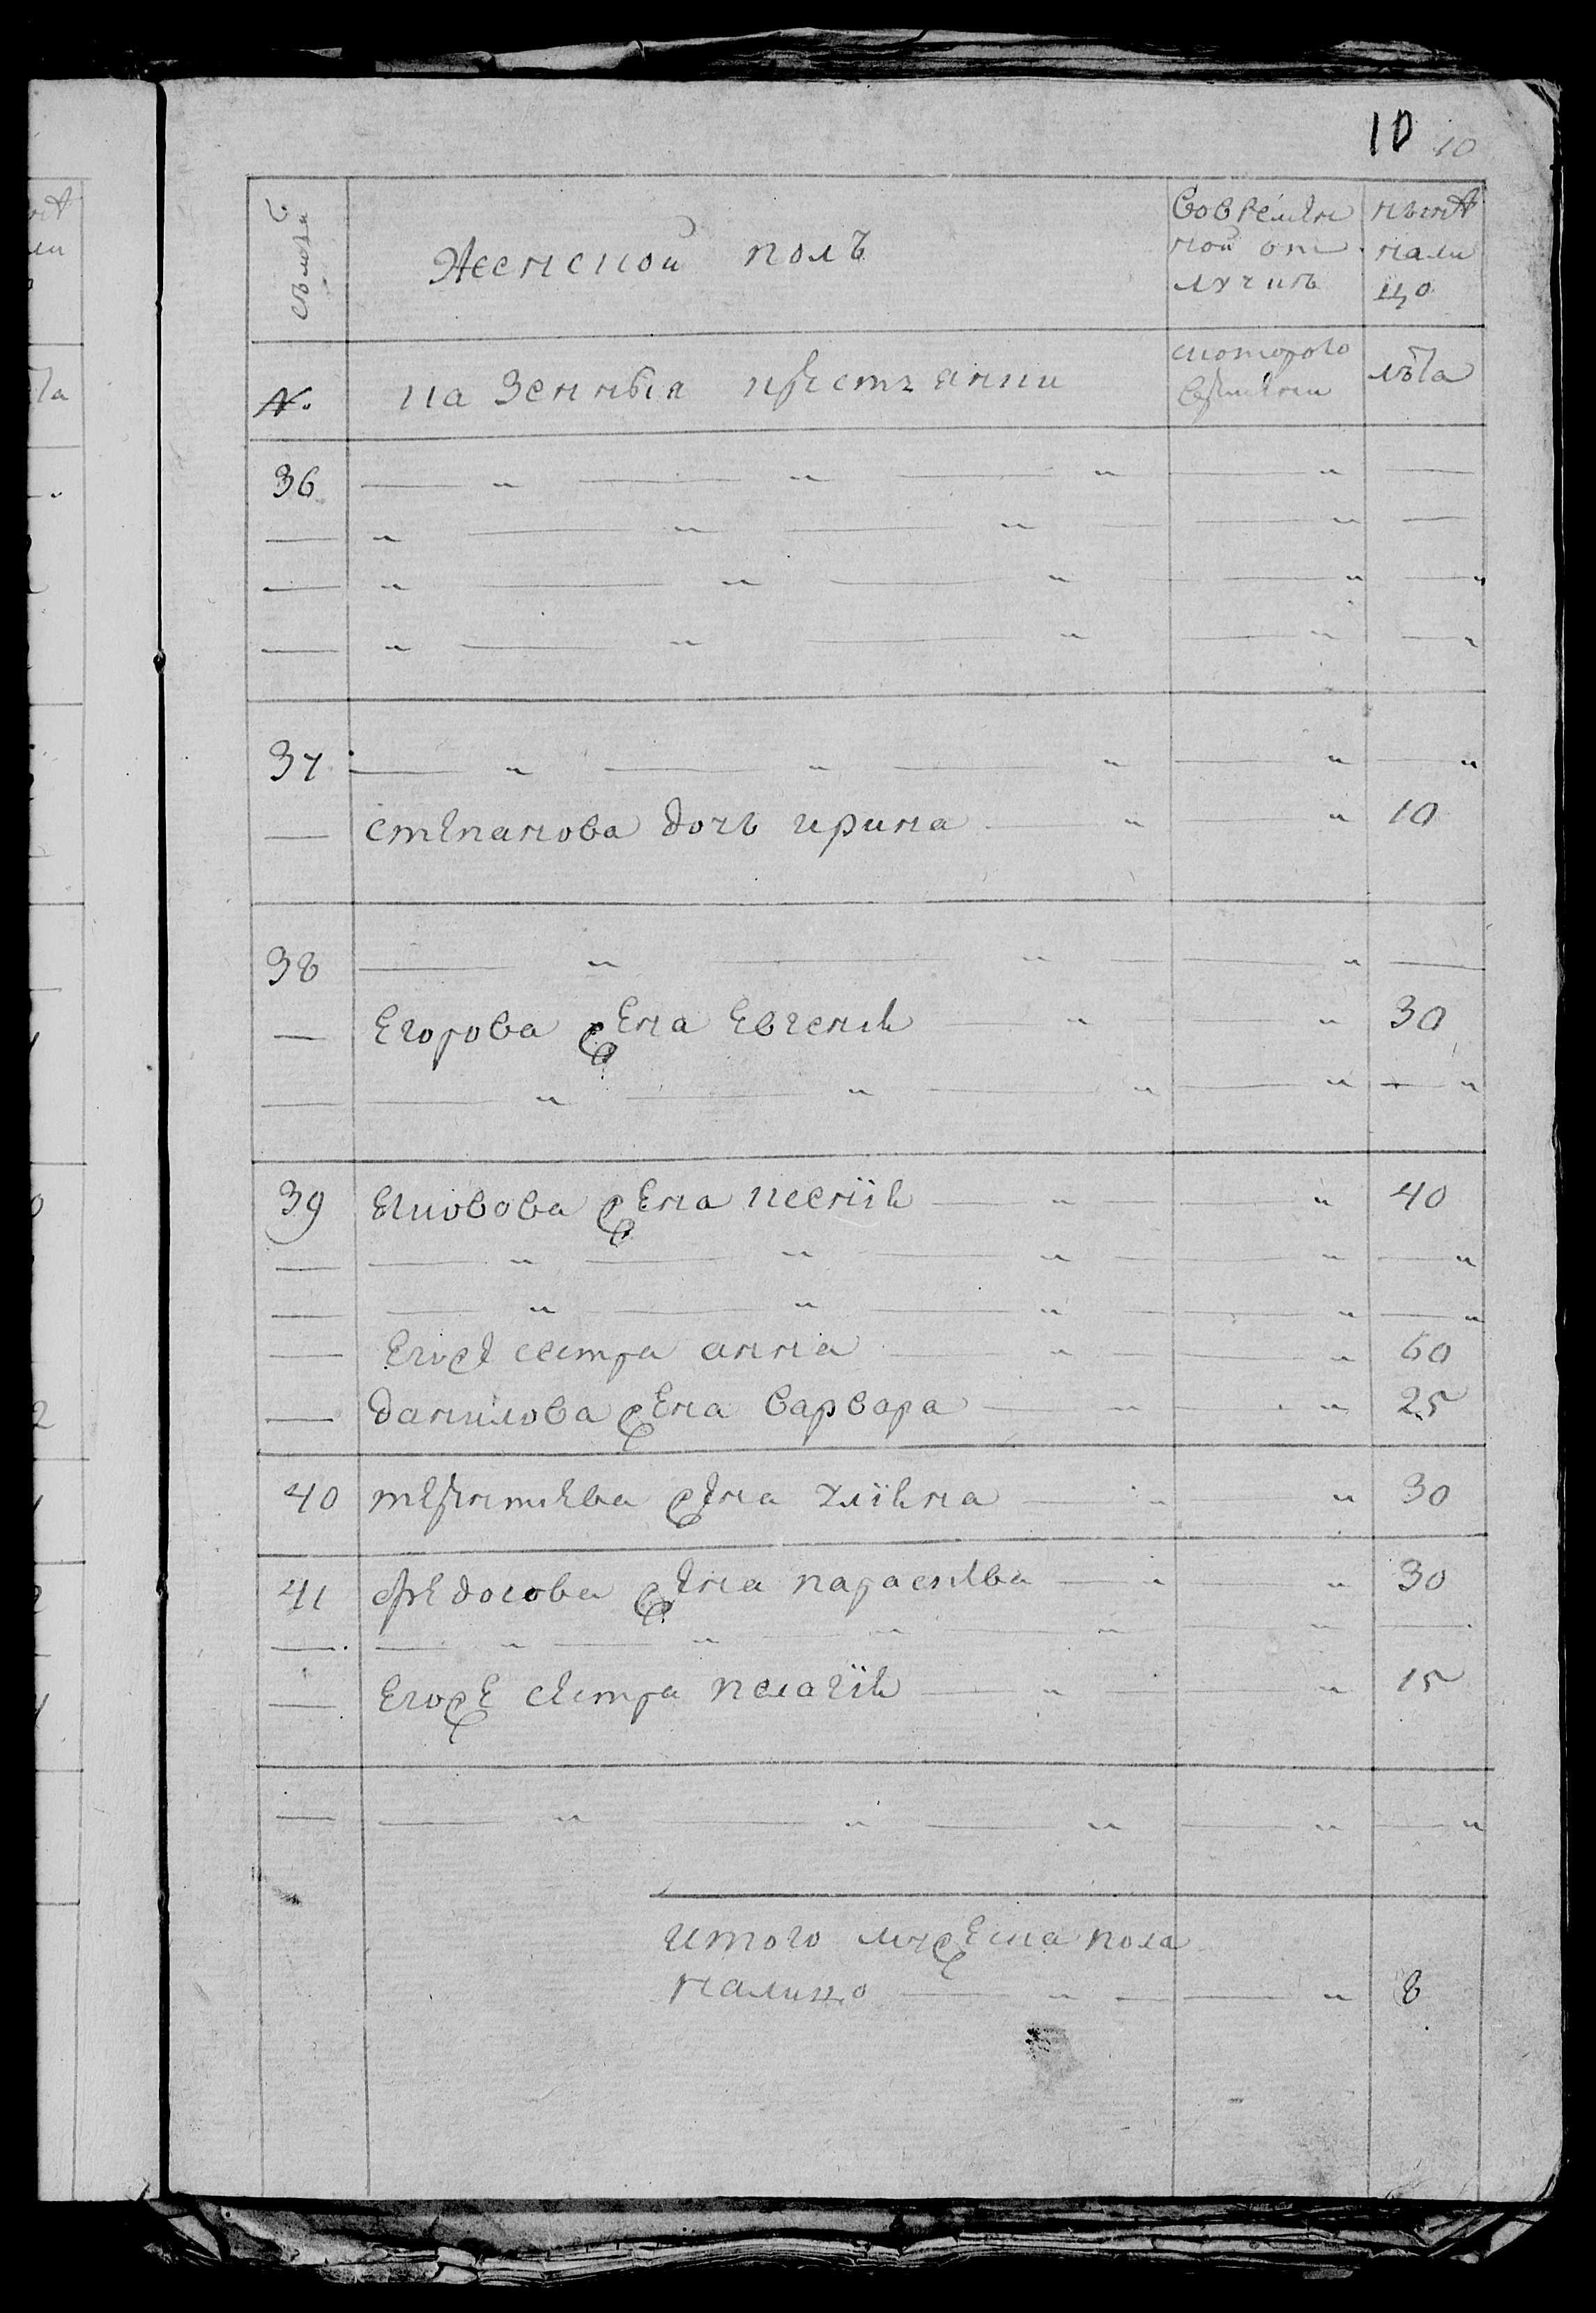 10 10
семьи
Женской полъ
Во времян
ной от
лучкѣ
ныне
нали
цо
№
Казенныя крестьянии
с которого
времяни
лѣта
36
37
степанова дочь ирина 10
38
Егорова жена Евгения 30
39 Яковова жена ксения 40
Его же сестра анна 60
данилова жена варвара 25
40 терентиева жена улияна 30
41 федосова жена парасква 30
Его же сестра пелагия 15
итого женска пола
налицо 8